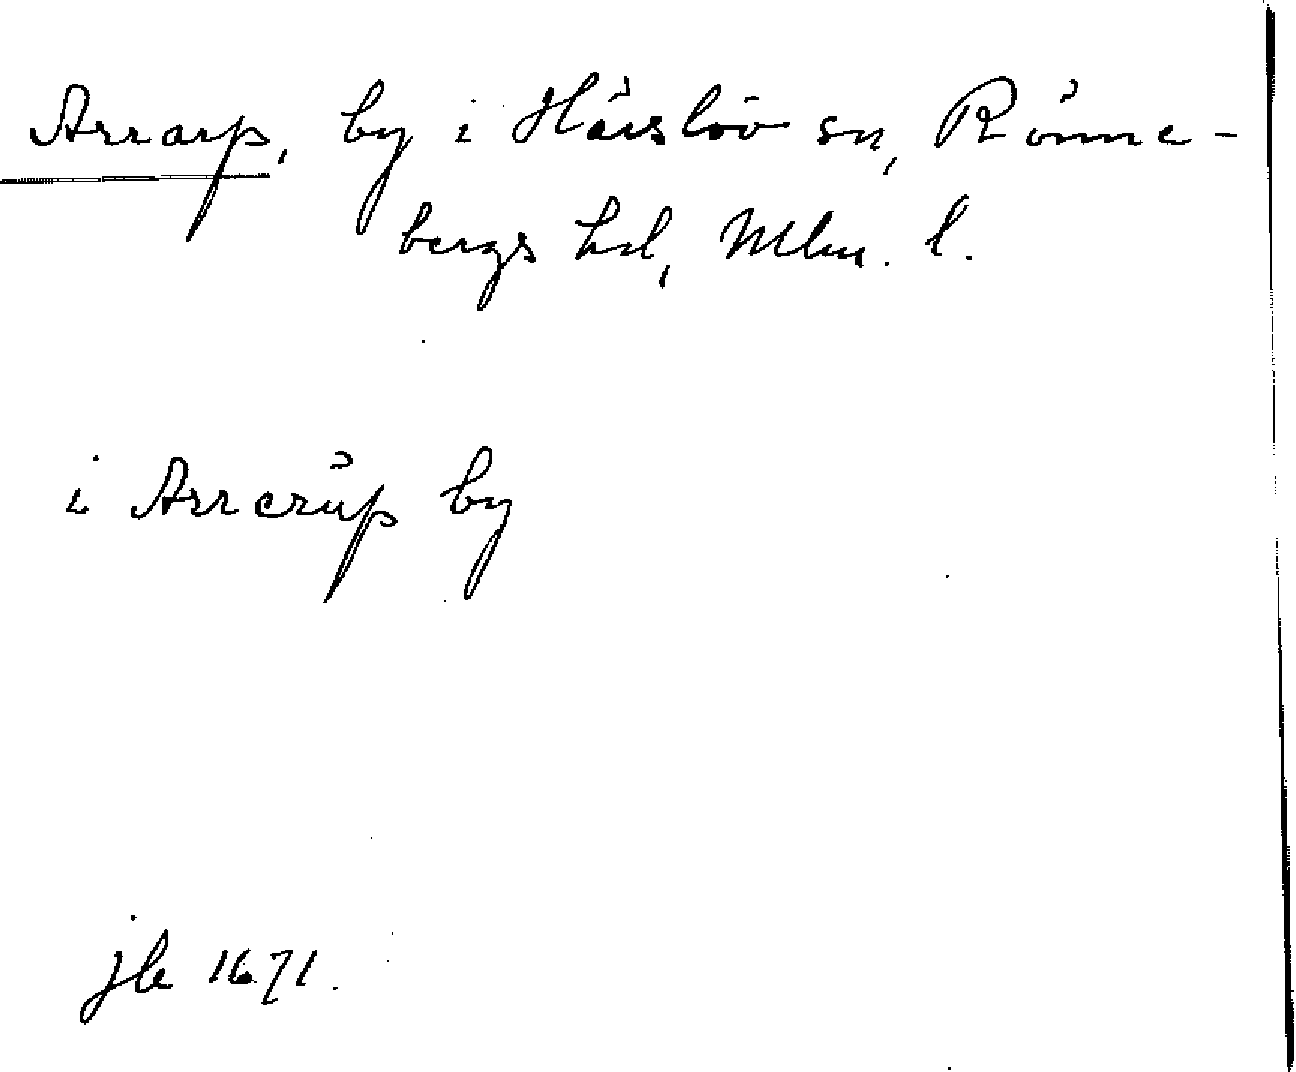 Arrarp, by i Härslöv sn, Rönne-
bergs hd, Mlm. l.
i Arrerŭp by
jb 1671.